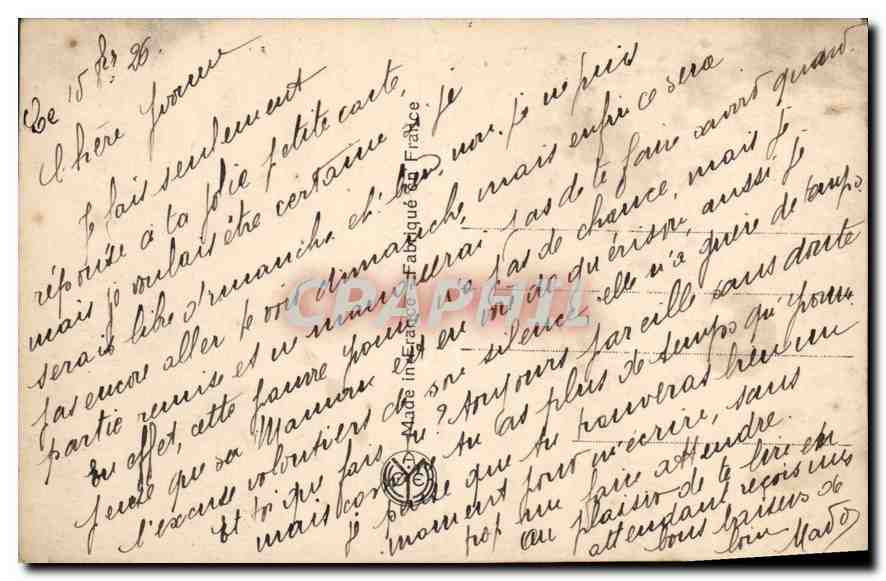 Le 15 fér 26.
Chère Yvonne
Je fais seulement
réponse à ta jolie petite carte,
mais je voulais être certaine si je
serais libre dimanche. eh! bien, non, je ne puis
pas encore aller te voir dimanche, mais enfin ce sera
partie remise et ne manquerai pas de te faire savoir quand.
En effet, cette pauvre n'a pas de chance, mais je
pense que sa Maman est en voie de guérison, aussi je
l'excuse volontiers de son silence, elle n'a guère de temps.
Et toi que fais-tu? toujours pareille sans doute
mais comme tu as plus de temps qu'Yvonne
je pense que tu trouveras bien un
moment pour m'écrire, sans
trop me faire attendre.
Au plaisir de te lire en
attendant reçois mes
bons baisers de
loin Mado
Made in France - Fabriqué en France
CRAPHIL